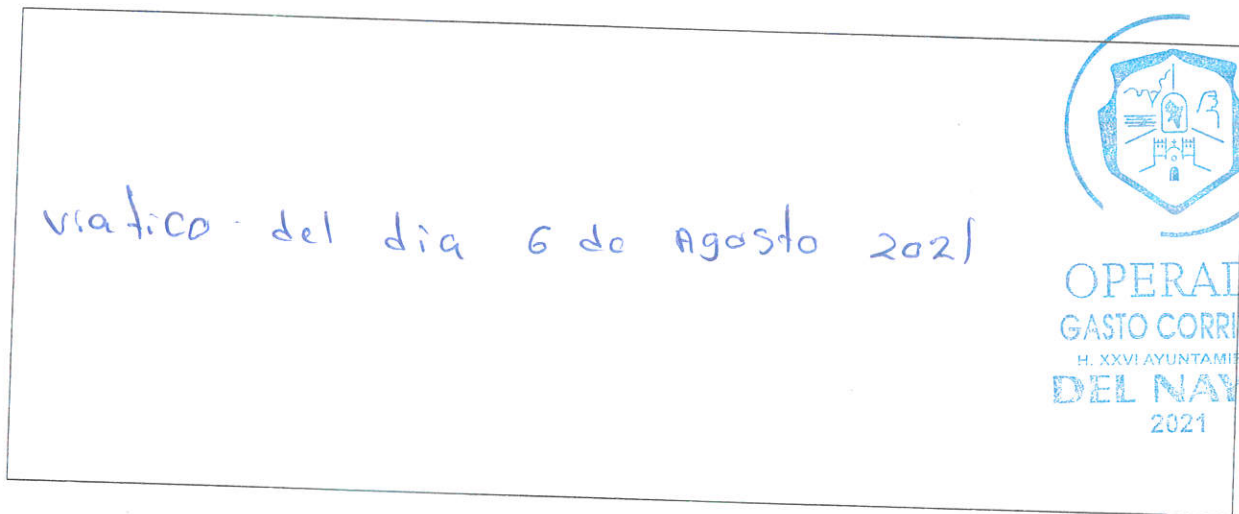 viatico del dia 6 de Agosto 2021
OPERAD
GASTO CORRI
H. XXVI AYUNTAMIE
DEL NAY
2021